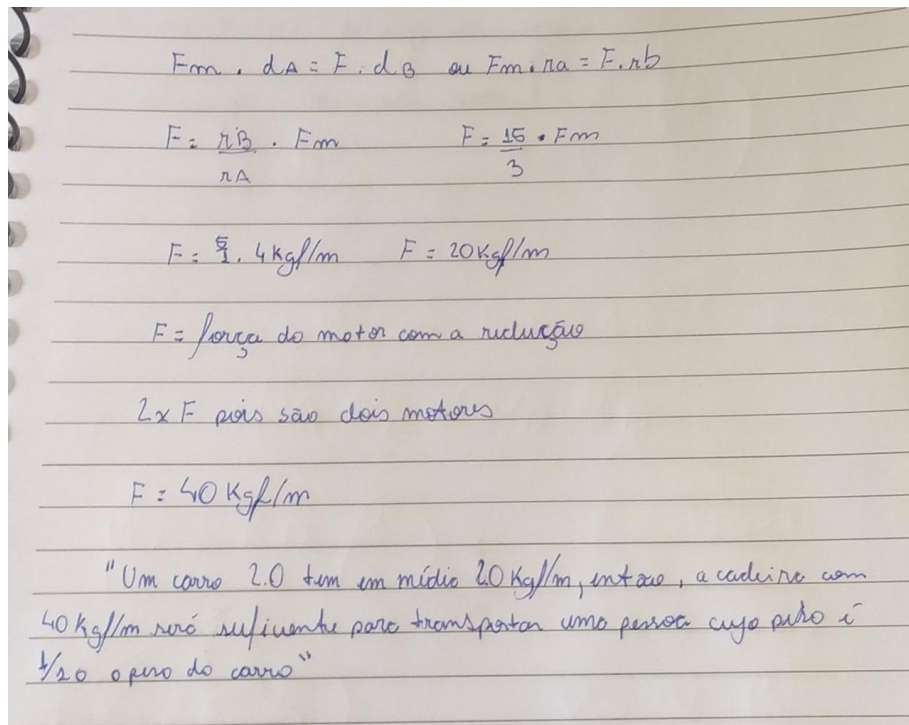 Fm . dA = F . dB ou Fm . ra = F . rb
F = rB/rA . Fm F = 15/3 . Fm
F = 5/1 . 4 Kgf/m F = 20 Kgf/m
F = força do motor com a redução
2x F pois são dois motores
F = 40 Kgf/m
"Um carro 2.0 tem em médio 20 Kgf/m, entao, a cadeira com
40 Kgf/m será suficiente para transportar uma pessoa cujo peso é
1/20 o peso do carro"